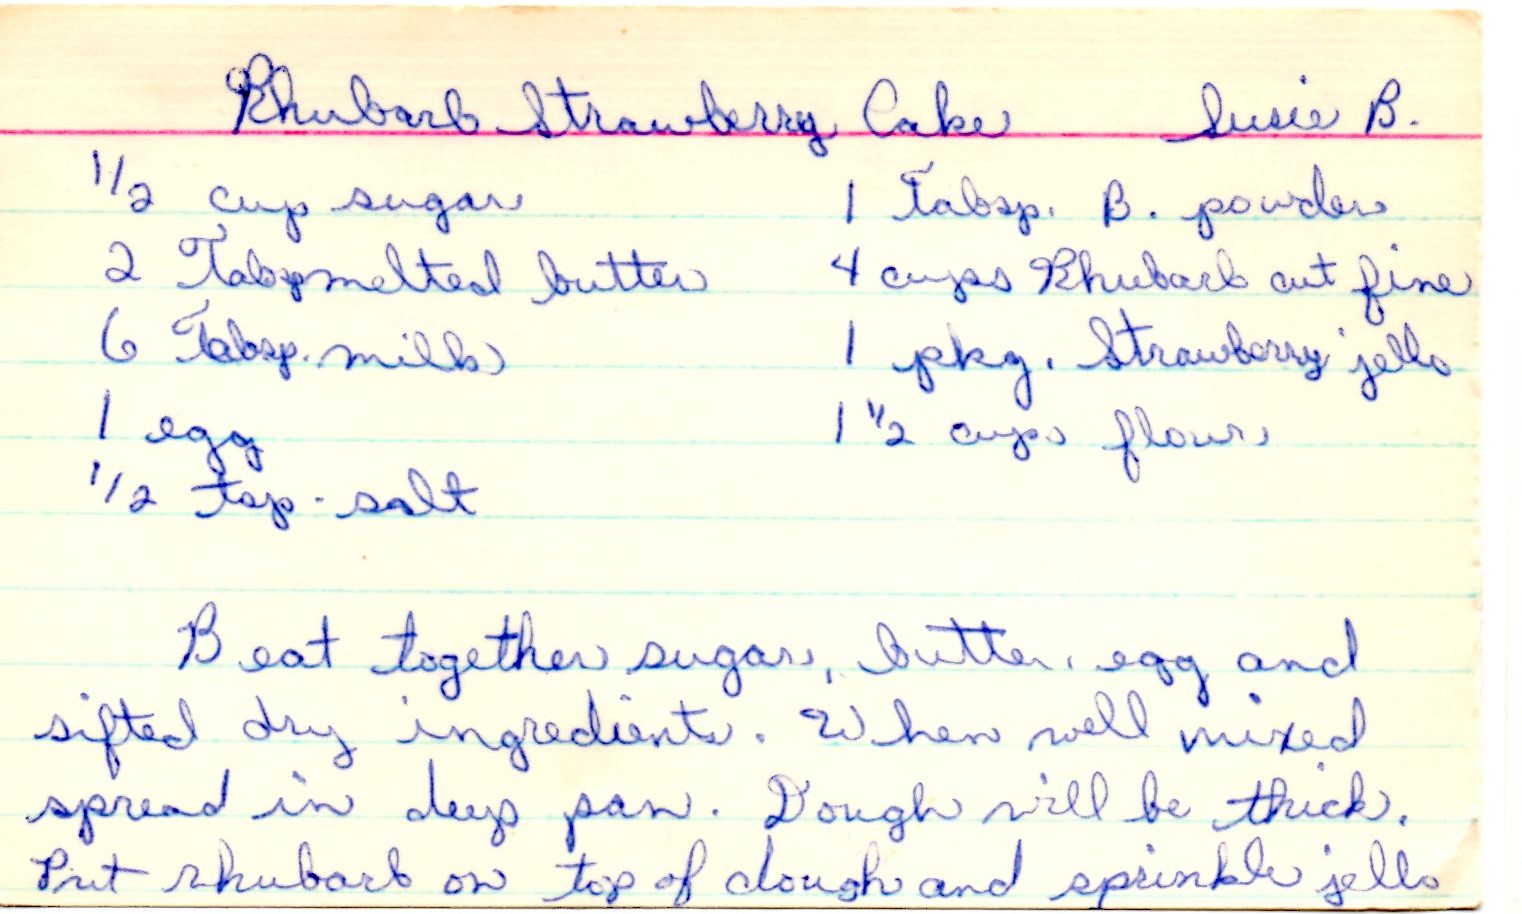 Rhubarb Strawberry Cake Susie B.
1/2 cup sugar
2 Tabsp melted butter
6 Tabsp. milk
1 egg
1/2 tsp. salt
1 Tabsp. B. powder
4 cups Rhubarb cut fine
1 pkg. Strawberry jello
1 1/2 cups flour
Beat together sugar, butter, egg and
sifted dry ingredients. When well mixed
spread in deep pan. Dough will be thick.
Put rhubarb on top of dough and sprinkle jello